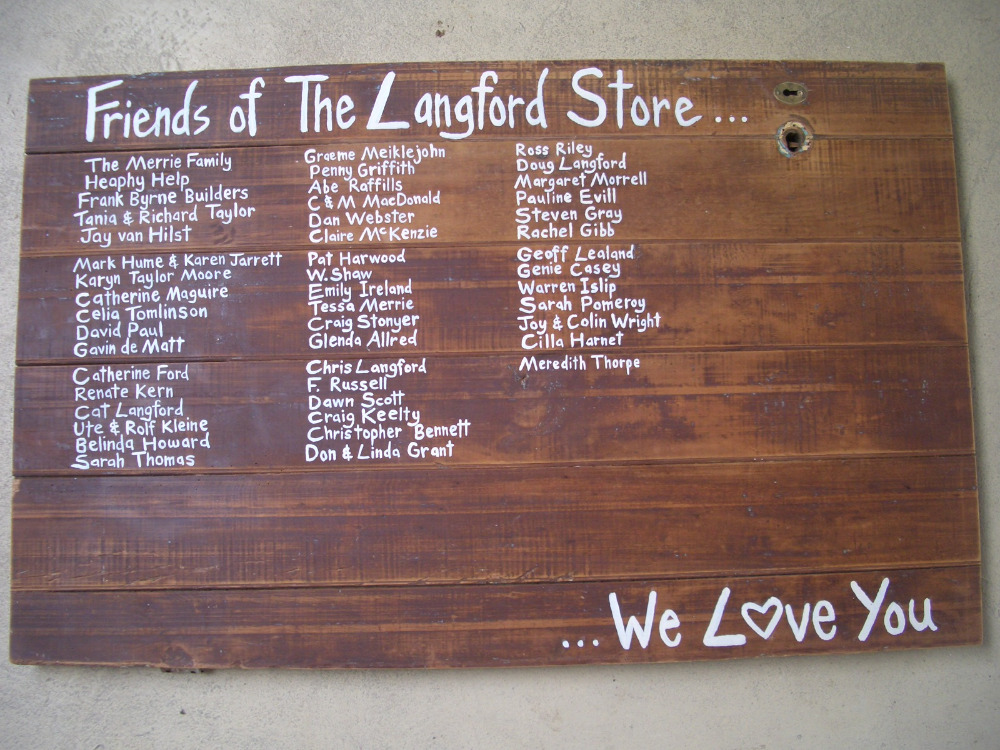 Friends of The Langford Store ...
The Merrie Family
Heaphy Help
Frank Byrne Builders
Tania & Richard Taylor
Jay van Hilst
Mark Hume & Karen Jarrett
Karyn Taylor Moore
Catherine Maguire
Celia Tomlinson
David Paul
Gavin de Matt
Catherine Ford
Renate Kern
Cat Langford
Ute & Rolf Kleine
Belinda Howard
Sarah Thomas
Graeme Meiklejohn
Penny Griffith
Abe Raffills
C & M MacDonald
Dan Webster
Claire McKenzie
Pat Harwood
W. Shaw
Emily Ireland
Tessa Merrie
Craig Stonyer
Glenda Allred
Chris Langford
F. Russell
Dawn Scott
Craig Keelty
Christopher Bennett
Don & Linda Grant
Ross Riley
Doug Langford
Margaret Morrell
Pauline Evill
Steven Gray
Rachel Gibb
Geoff Lealand
Genie Casey
Warren Islip
Sarah Pomeroy
Joy & Colin Wright
Cilla Harnet
Meredith Thorpe
... We L♡ve You